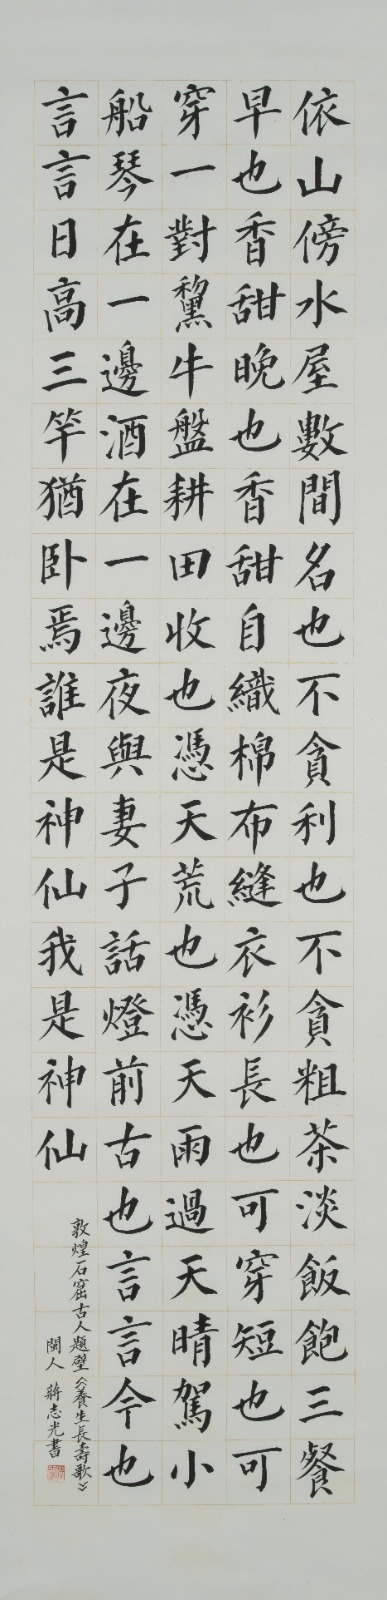 依山傍水屋數間名也不貪利也不貪粗茶淡飯飽三餐
早也香甜晚也香甜自織棉布縫衣衫長也可穿短也可
穿一對犂牛盤耕田收也憑天荒也憑天雨過天晴駕小
船琴在一邊酒在一邊夜與妻子話燈前古也言言今也
言言日高三竿猶卧焉誰是神仙我是神仙
敦煌石窟古人題壁《養生長壽歌》
閩人 蔣志光書